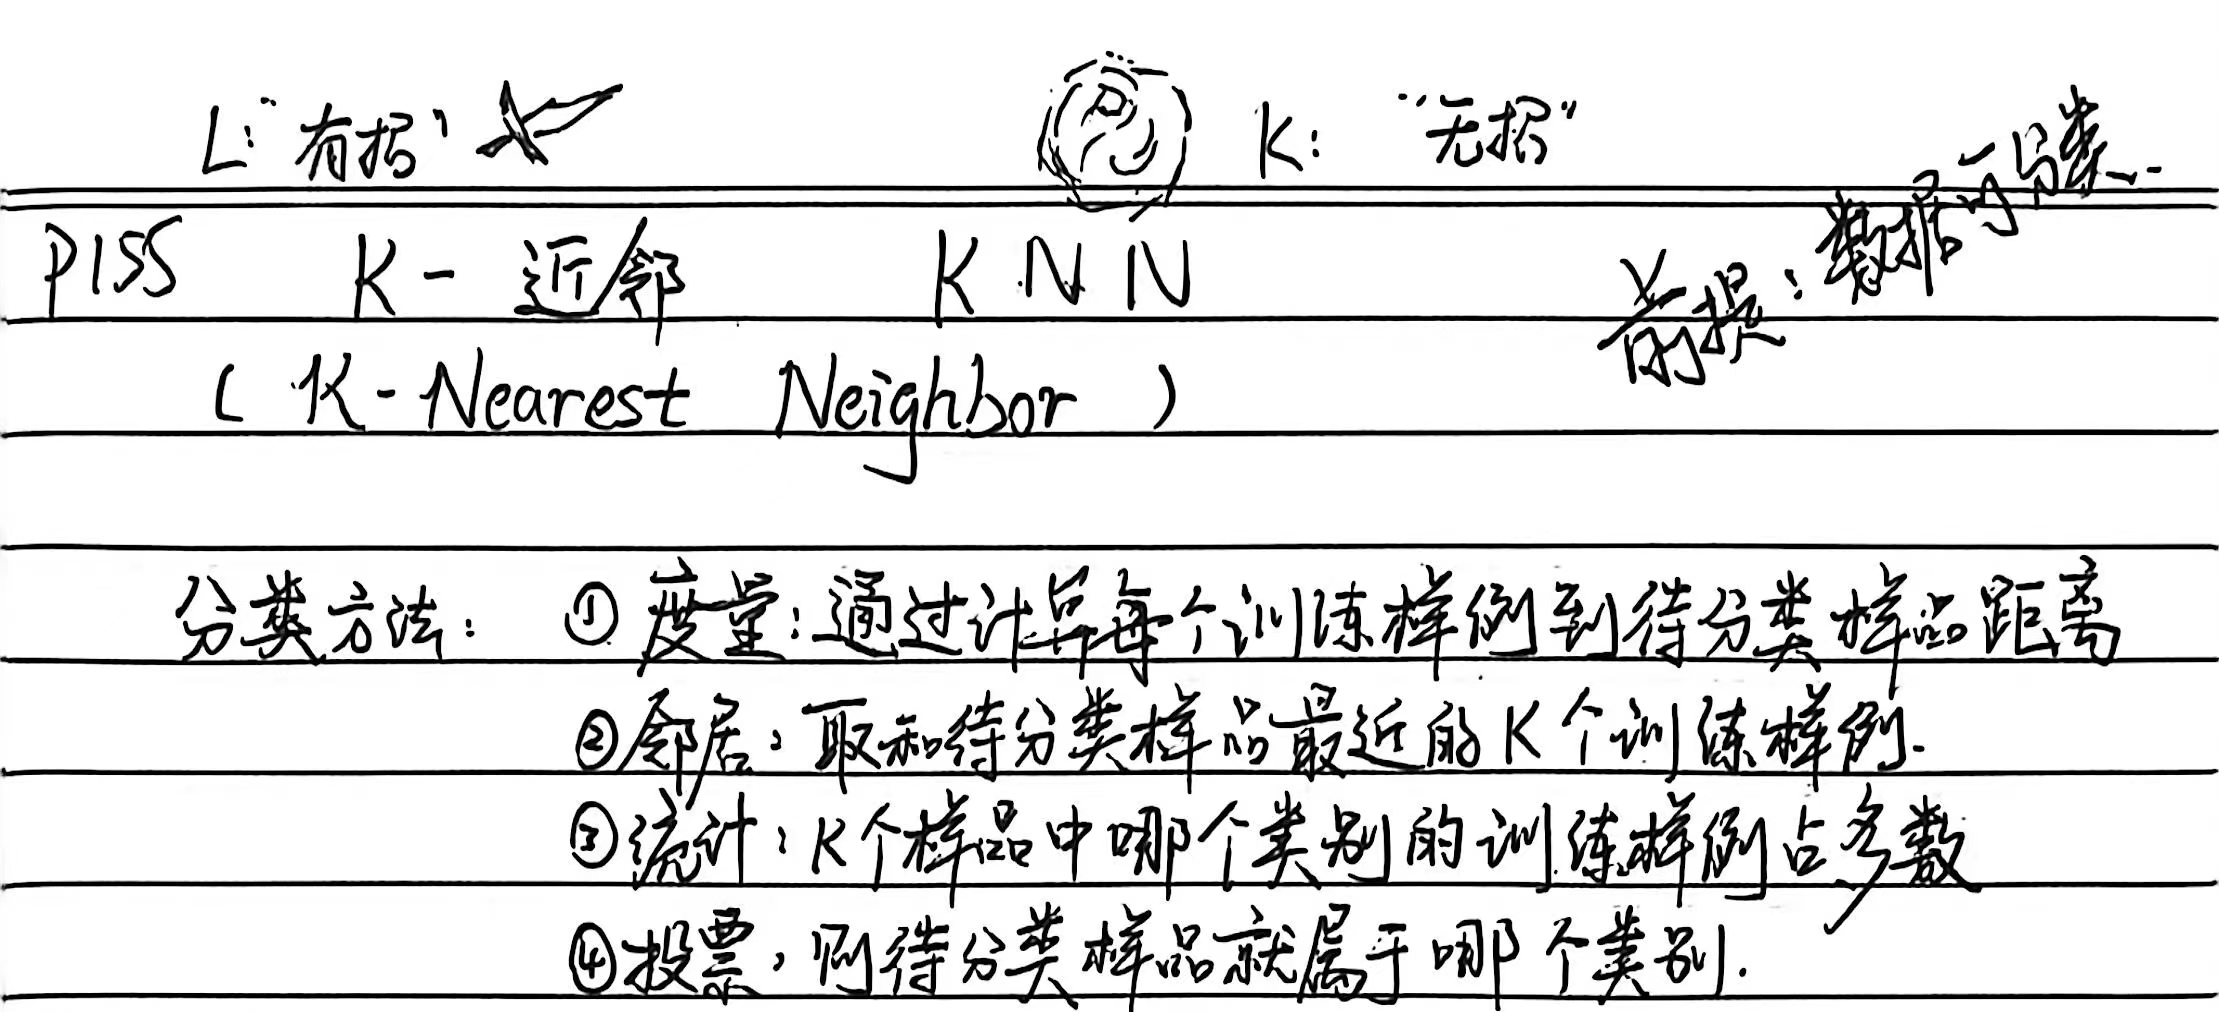 L: "有招" K: "无招"
前提: 数据可分类...
P155 K-近邻 KNN
(K-Nearest Neighbor)
分类方法: ①度量:通过计算每个训练样例到待分类样品距离
②邻居:取和待分类样品最近的K个训练样例.
③统计:K个样品中哪个类别的训练样例占多数
④投票:则待分类样品就属于哪个类别.